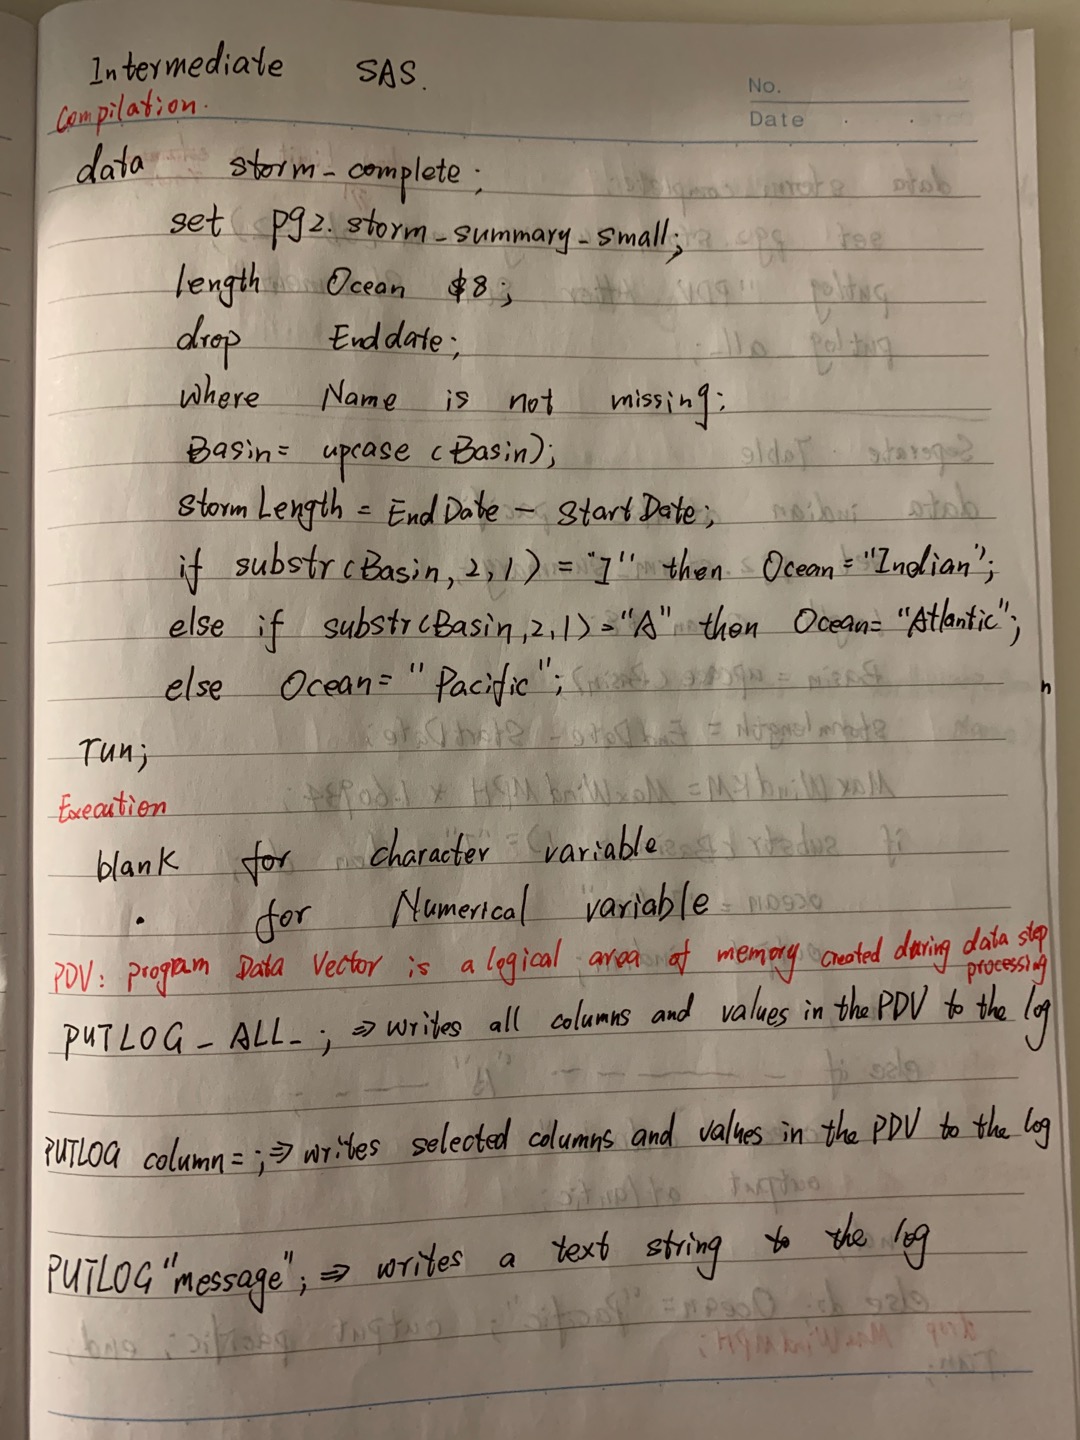 Intermediate SAS.
No.
Compilation.
Date
data storm_complete;
set pg2.storm_summary_small;
length Ocean $8;
drop Enddate;
where Name is not missing;
Basin= upcase (Basin);
StormLength = EndDate - StartDate;
if substr(Basin,2,1) = "I" then Ocean = "Indian";
else if substr(Basin,2,1)="A" then Ocean= "Atlantic";
else Ocean= "Pacific";
run;
Execution
blank for character variable
. for Numerical variable
PDV: program Data Vector is a logical area of memory created during data step
processing
PUTLOG _ALL_; ⇒ writes all columns and values in the PDV to the log
PUTLOG column=; ⇒ writes selected columns and values in the PDV to the log
PUTLOG "message"; ⇒ writes a text string to the log